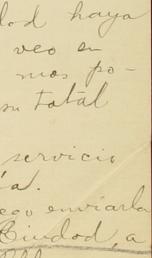 dod haya
veo en
mos po-
su total
servicio
a.
ego enviarla
Ciudad, a